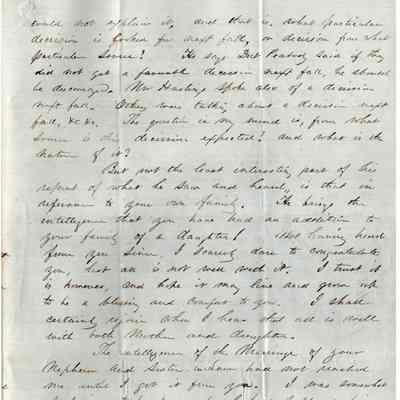 could not explain it, and that is, what particular
decision is looked for next fall, or decision from what
particular source? He says Doct Peabody said if they
did not get a favorable decision next fall, he should
be discouraged. Mr Hastings spoke also of a decision
next fall. Others were talking about a decision next
fall, &c &c. The question in my mind is, from what
source is the decision expected? and what is the
nature of it?
But not the least interesting part of his
report of what he saw and heard, is that in
reference to your own family. He brings the
intelligence that you have had an addition to
your family of a daughter! Not having heard
from you since, I scarcely dare to congratulate
you, lest all is not well with it. I trust it
is however, and hope it may live and grow up
to be a blessing and comfort to you. I shall
certainly rejoice when I hear that all is well
with both Mother and daughter.
The intelligence of the Marriage of your
Nephew and Sister in law had not reached
me until I got it from you. I was somewhat